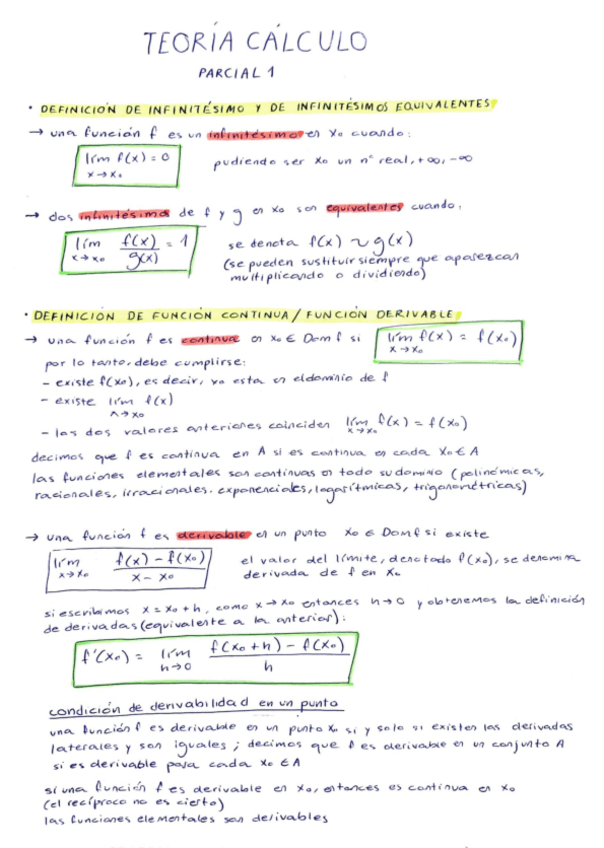 TEORÍA CÁLCULO
PARCIAL 1
· DEFINICIÓN DE INFINITÉSIMO Y DE INFINITÉSIMOS EQUIVALENTES
→ una función f es un infinitésimo en x₀ cuando:
lím f(x) = 0 pudiendo ser x₀ un nº real, +∞, -∞
x→x₀
→ dos infinitésimos de f y g en x₀ son equivalentes cuando:
lím f(x)/g(x) = 1 se denota f(x) ~ g(x)
x→x₀ (se pueden sustituir siempre que aparezcan
multiplicando o dividiendo)
· DEFINICIÓN DE FUNCIÓN CONTINUA / FUNCIÓN DERIVABLE
→ una función f es continua en x₀ ∈ Dom f si lím f(x) = f(x₀)
x→x₀
por lo tanto, debe cumplirse:
- existe f(x₀), es decir, x₀ esta en el dominio de f
- existe lím f(x)
x→x₀
- los dos valores anteriores coinciden lím f(x) = f(x₀)
x→x₀
decimos que f es continua en A si es continua en cada x₀ ∈ A
las funciones elementales son continuas en todo su dominio (polinómicas,
racionales, irracionales, exponenciales, logarítmicas, trigonométricas)
→ una función f es derivable en un punto x₀ ∈ Dom f si existe
lím f(x) - f(x₀) / x - x₀ el valor del límite, denotado f(x₀), se denomina
x→x₀ derivada de f en x₀
si escribimos x = x₀ + h, como x → x₀ entonces h→0 y obtenemos la definición
de derivadas (equivalente a la anterior):
f'(x₀) = lím f(x₀ + h) - f(x₀) / h
h→0
condición de derivabilidad en un punto
una función f es derivable en un punto x₀ si y solo si existen las derivadas
laterales y son iguales; decimos que f es derivable en un conjunto A
si es derivable para cada x₀ ∈ A
si una función f es derivable en x₀, entonces es continua en x₀
(el recíproco no es cierto)
las funciones elementales son derivables